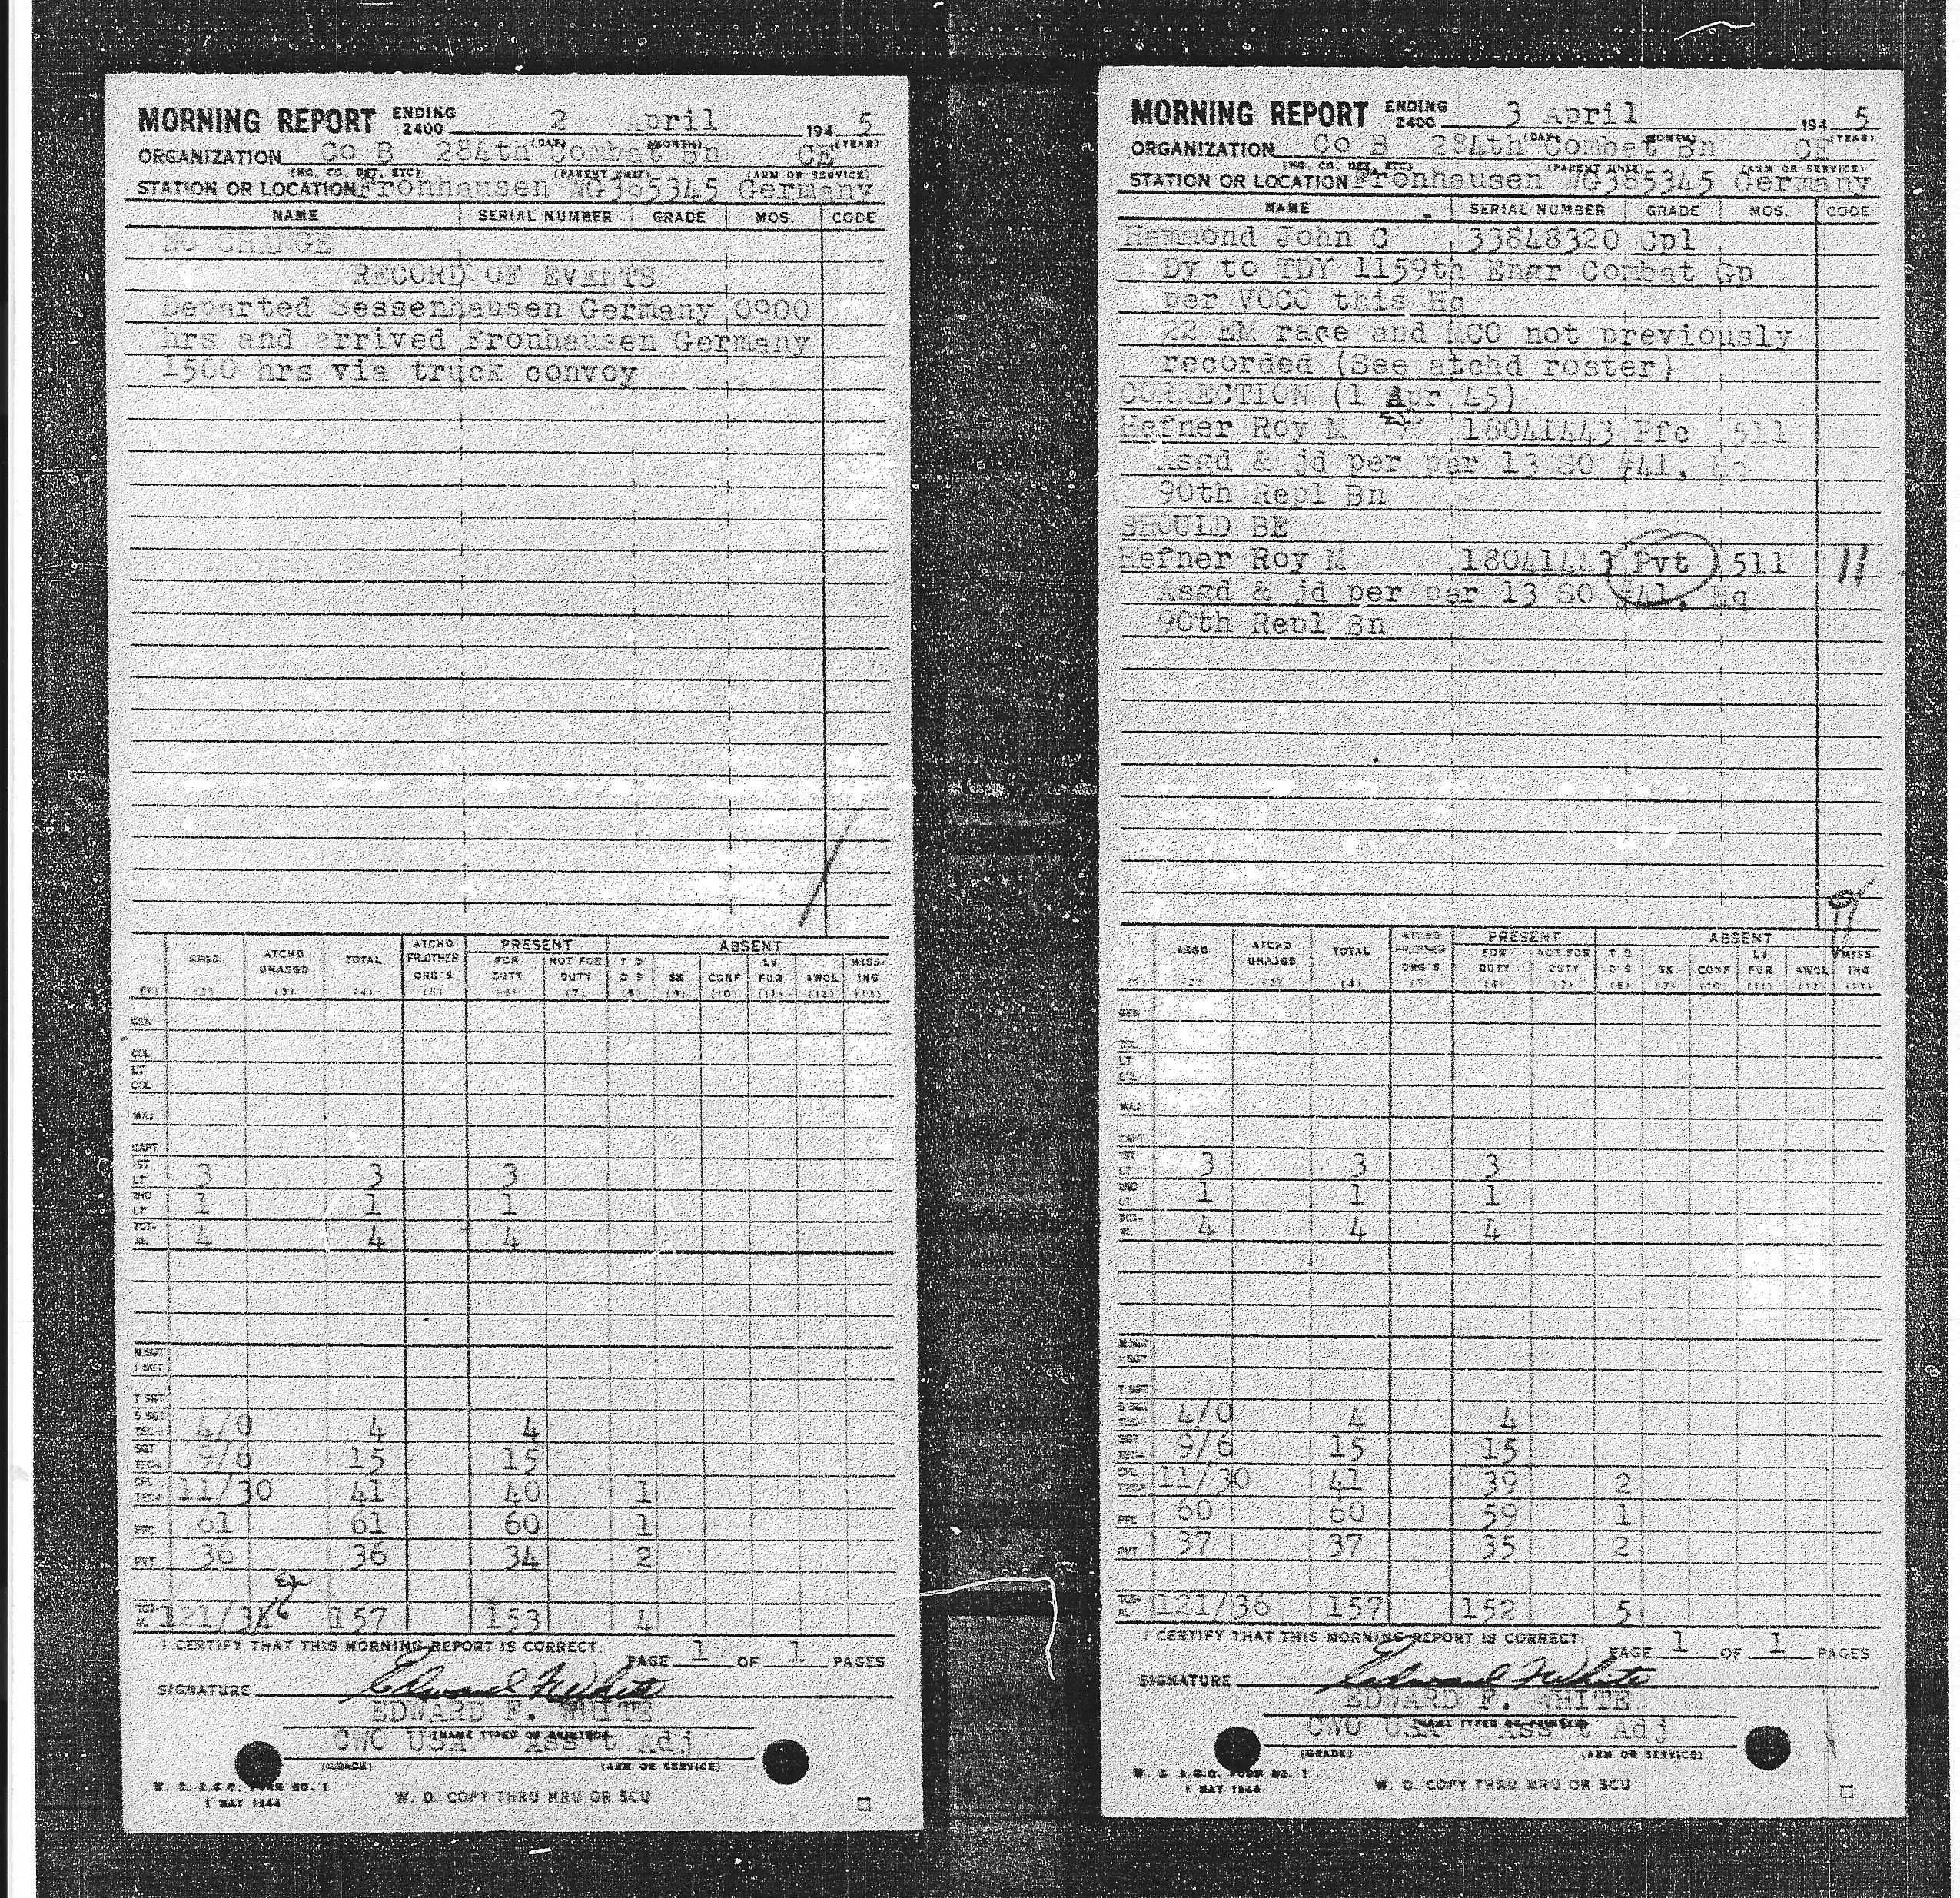 MORNING REPORT ENDING 2400 2 April 194 5
(DAY) (MONTH) (YEAR)
ORGANIZATION Co B 284th Combat Bn CE
(HQ. CO. DET, ETC) (PARENT UNIT) (ARM OR SERVICE)
STATION OR LOCATION Fronhausen WG385345 Germany
NAME SERIAL NUMBER GRADE MOS. CODE
NO CHANGE
RECORD OF EVENTS
Departed Sessenhausen Germany 0900
hrs and arrived Fronhausen Germany
1500 hrs via truck convoy
ASGD ATCHD UNASGD TOTAL ATCHD FR.OTHER ORG'S PRESENT ABSENT
FOR DUTY NOT FOR DUTY T D D S SK CONF LV FUR AWOL MISSING
(1) (2) (3) (4) (5) (6) (7) (8) (9) (10) (11) (12) (13)
GEN
COL
LT COL
MAJ
CAPT
1ST LT 3 3 3
2ND LT 1 1 1
TOTAL 4 4 4
M SGT
1 SGT
T SGT
S SGT 4/0 4 4
SGT 9/6 15 15
CPL 11/30 41 40 1
PFC 61 61 60 1
PVT 36 36 34 2
121/36 157 153 4
I CERTIFY THAT THIS MORNING REPORT IS CORRECT:
PAGE 1 OF 1 PAGES
SIGNATURE Edward F White
EDWARD F. WHITE
(NAME TYPED OR PRINTED)
CWO USA Ass't Adj
(GRADE) (ARM OR SERVICE)
W. D. A.G.O. FORM NO. 1
1 MAY 1944
W. D. COPY THRU MRU OR SCU
MORNING REPORT ENDING 2400 3 April 194 5
(DAY) (MONTH) (YEAR)
ORGANIZATION Co B 284th Combat Bn CE
(HQ. CO. DET, ETC) (PARENT UNIT) (ARM OR SERVICE)
STATION OR LOCATION Fronhausen WG385345 Germany
NAME SERIAL NUMBER GRADE MOS. CODE
Hammond John C 33848320 Cpl
Dy to TDY 1159th Engr Combat Gp
per VOCO this Hq
22 EM race and MCO not previously
recorded (See atchd roster)
CORRECTION (1 Apr 45)
Hefner Roy M 18041443 Pfc 511
Asgd & jd per par 13 SO #41, Hq
90th Repl Bn
SHOULD BE
Hefner Roy M 18041443 Pvt 511 11
Asgd & jd per par 13 SO #41, Hq
90th Repl Bn
ASGD ATCHD UNASGD TOTAL ATCHD FR.OTHER ORG'S PRESENT ABSENT
FOR DUTY NOT FOR DUTY T D D S SK CONF LV FUR AWOL MISSING
(1) (2) (3) (4) (5) (6) (7) (8) (9) (10) (11) (12) (13)
GEN
COL
LT COL
MAJ
CAPT
1ST LT 3 3 3
2ND LT 1 1 1
TOTAL 4 4 4
M SGT
1 SGT
T SGT
S SGT 4/0 4 4
9/6 15 15
11/30 41 39 2
60 60 59 1
PVT 37 37 35 2
121/36 157 152 5
I CERTIFY THAT THIS MORNING REPORT IS CORRECT:
PAGE 1 OF 1 PAGES
SIGNATURE Edward F White
EDWARD F. WHITE
(NAME TYPED OR PRINTED)
CWO USA Ass't Adj
(GRADE) (ARM OR SERVICE)
W. D. A.G.O. FORM NO. 1
1 MAY 1944
W. D. COPY THRU MRU OR SCU